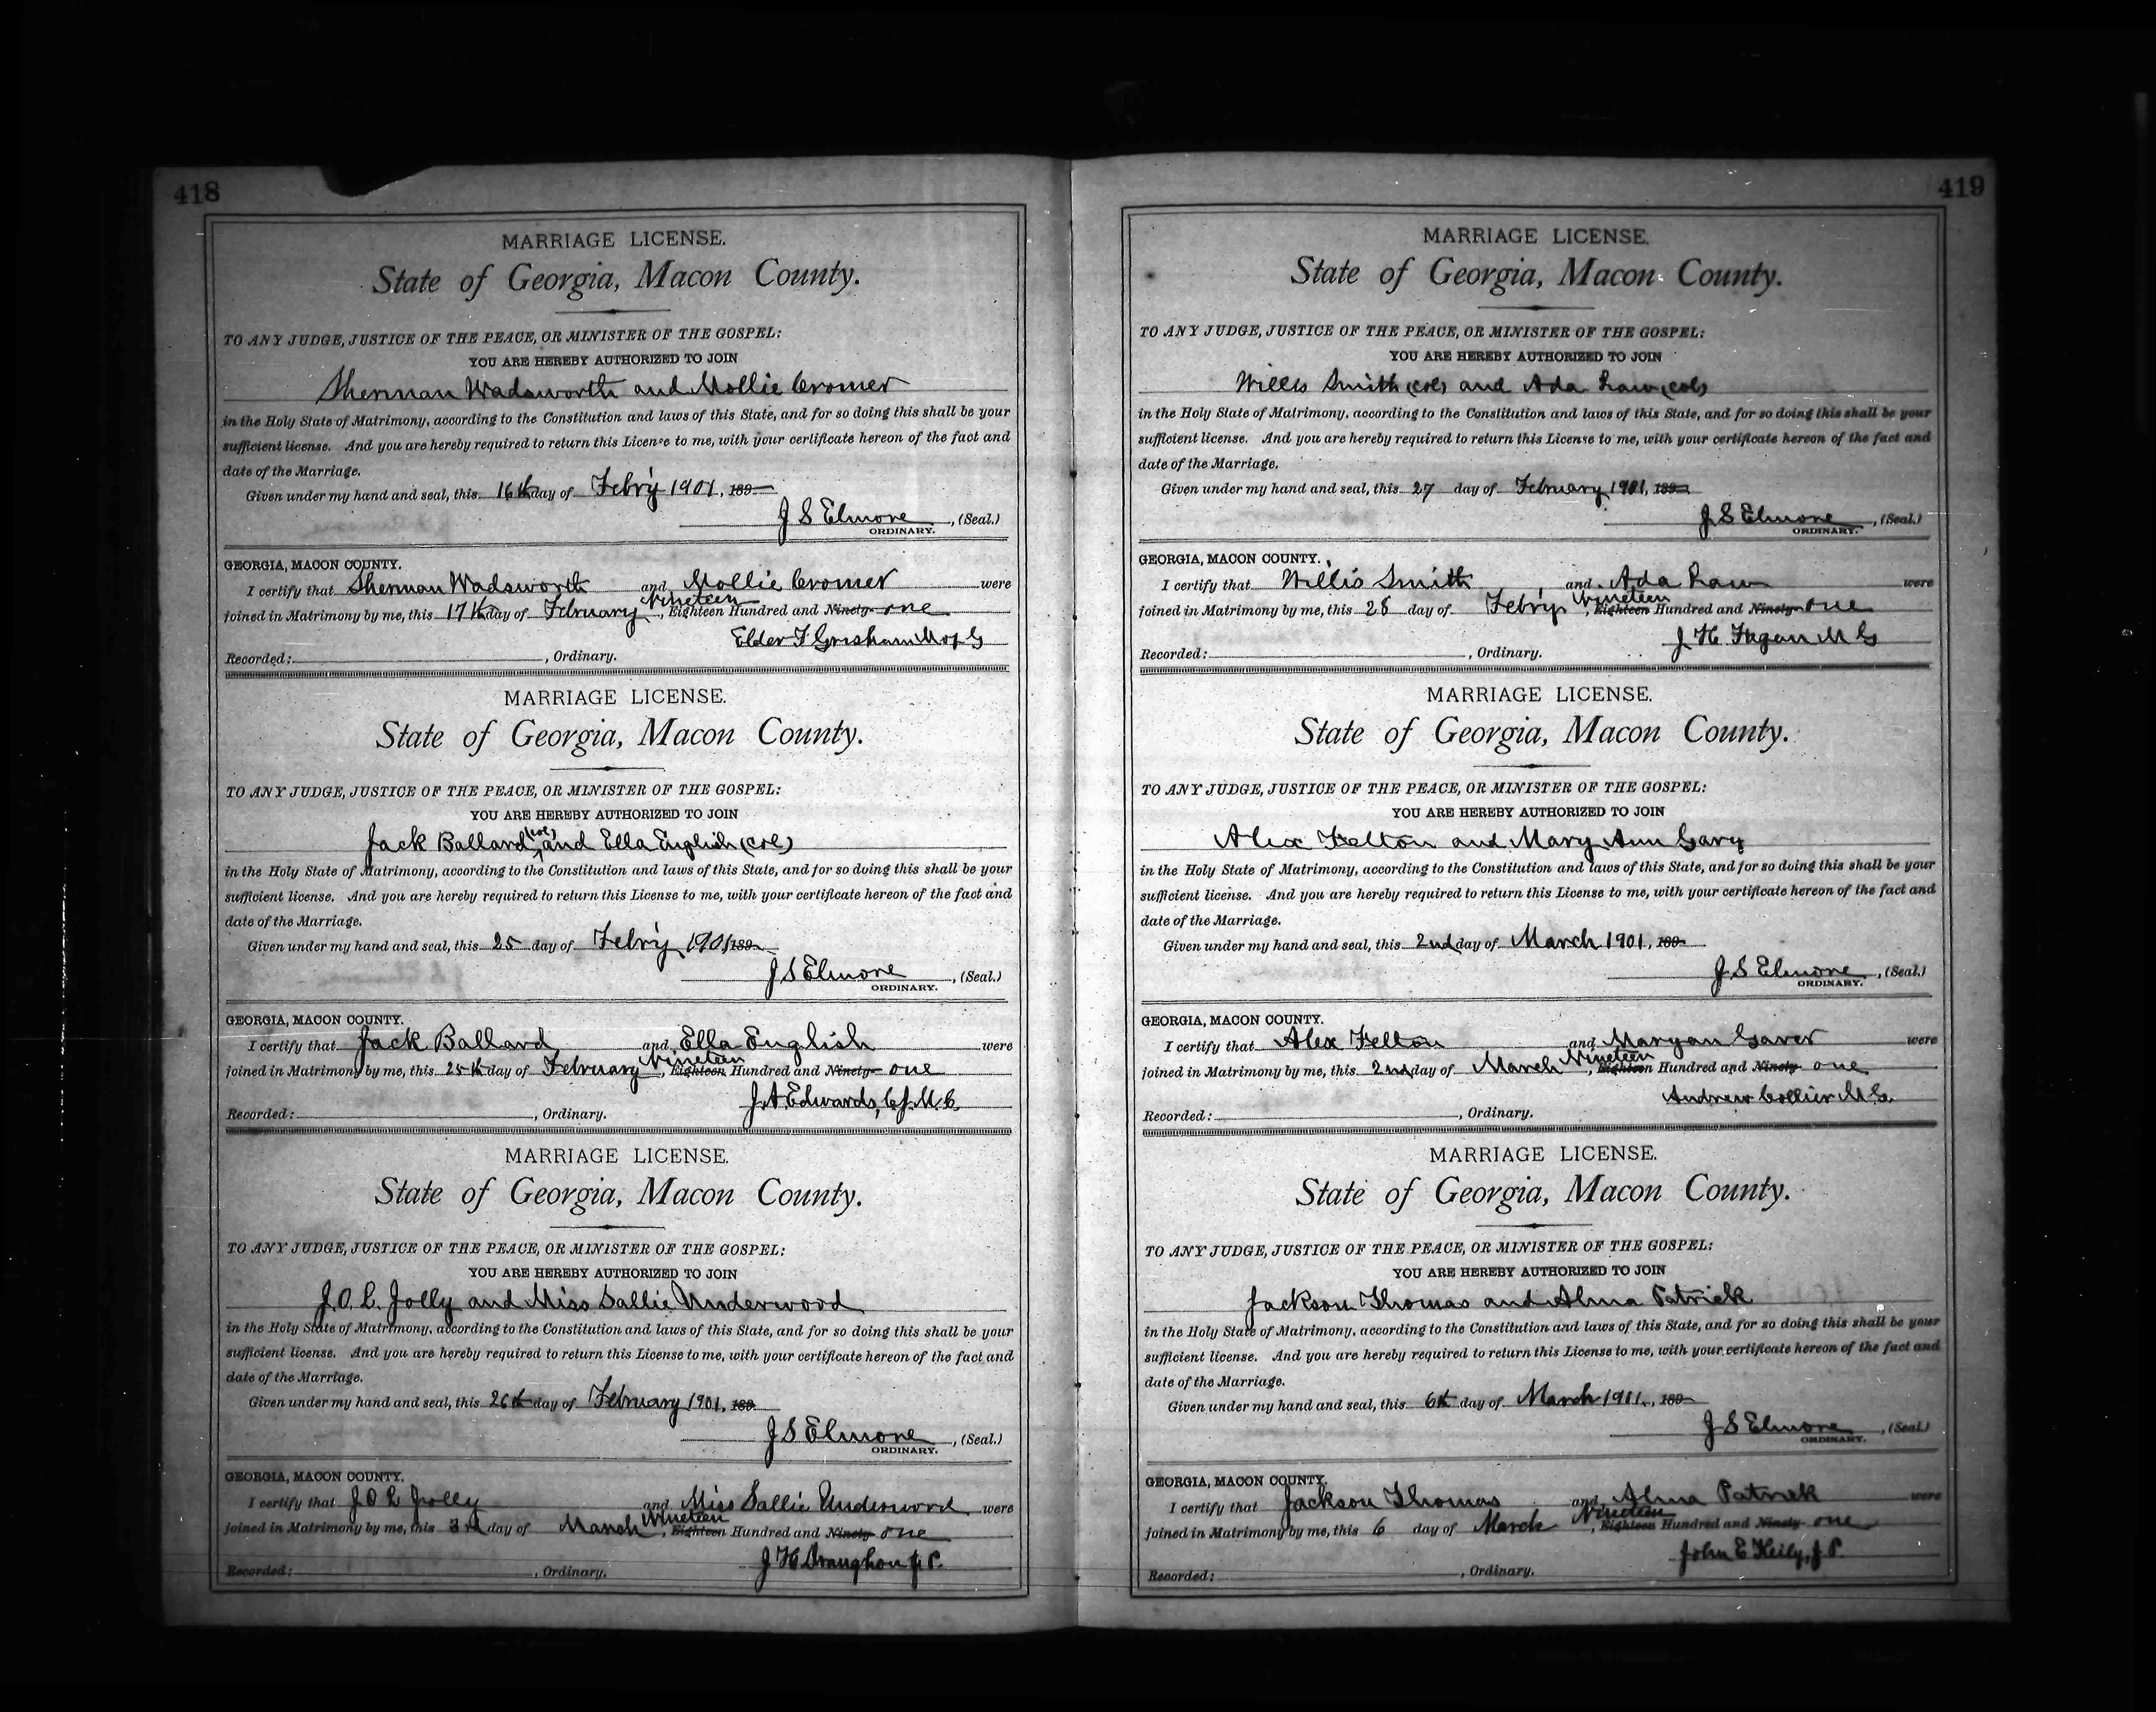 418
MARRIAGE LICENSE.
State of Georgia, Macon County.
TO ANY JUDGE, JUSTICE OF THE PEACE, OR MINISTER OF THE GOSPEL:
YOU ARE HEREBY AUTHORIZED TO JOIN
Sherman Wadsworth and Mollie Cromer
in the Holy State of Matrimony, according to the Constitution and laws of this State, and for so doing this shall be your
sufficient license. And you are hereby required to return this License to me, with your certificate hereon of the fact and
date of the Marriage.
Given under my hand and seal, this 16th day of Febr'y 1901, 189
J S Elmore, (Seal.)
ORDINARY.
GEORGIA, MACON COUNTY.
I certify that Sherman Wadsworth and Mollie Cromer were
joined in Matrimony by me, this 17th day of February Nineteen, Eighteen Hundred and Ninety- one
Elder F Grisham M of G
Recorded: , Ordinary.
MARRIAGE LICENSE.
State of Georgia, Macon County.
TO ANY JUDGE, JUSTICE OF THE PEACE, OR MINISTER OF THE GOSPEL:
YOU ARE HEREBY AUTHORIZED TO JOIN
Jack Ballard (col) and Ella English (col)
in the Holy State of Matrimony, according to the Constitution and laws of this State, and for so doing this shall be your
sufficient license. And you are hereby required to return this License to me, with your certificate hereon of the fact and
date of the Marriage.
Given under my hand and seal, this 25 day of Febr'y 1901 189
J S Elmore, (Seal.)
ORDINARY.
GEORGIA, MACON COUNTY.
I certify that Jack Ballard and Ella English were
joined in Matrimony by me, this 25th day of February Nineteen, Eighteen Hundred and Ninety- one
J. A Edwards, C.J.M.C.
Recorded: , Ordinary.
MARRIAGE LICENSE.
State of Georgia, Macon County.
TO ANY JUDGE, JUSTICE OF THE PEACE, OR MINISTER OF THE GOSPEL:
YOU ARE HEREBY AUTHORIZED TO JOIN
J. O. L. Jolly and Miss Sallie Underwood
in the Holy State of Matrimony, according to the Constitution and laws of this State, and for so doing this shall be your
sufficient license. And you are hereby required to return this License to me, with your certificate hereon of the fact and
date of the Marriage.
Given under my hand and seal, this 26th day of February 1901, 189
J S Elmore, (Seal.)
ORDINARY.
GEORGIA, MACON COUNTY.
I certify that J O L Jolly and Miss Sallie Underwood were
joined in Matrimony by me, this 3rd day of March Nineteen, Eighteen Hundred and Ninety- one
J H Draughon J.P.
Recorded: , Ordinary.
419
MARRIAGE LICENSE.
State of Georgia, Macon County.
TO ANY JUDGE, JUSTICE OF THE PEACE, OR MINISTER OF THE GOSPEL:
YOU ARE HEREBY AUTHORIZED TO JOIN
Willis Smith (col) and Ada Law (col)
in the Holy State of Matrimony, according to the Constitution and laws of this State, and for so doing this shall be your
sufficient license. And you are hereby required to return this License to me, with your certificate hereon of the fact and
date of the Marriage.
Given under my hand and seal, this 27 day of February 1901, 189
J. S Elmore, (Seal.)
ORDINARY.
GEORGIA, MACON COUNTY.
I certify that Willis Smith and Ada Law were
joined in Matrimony by me, this 28 day of Febr'y Nineteen, Eighteen Hundred and Ninety- one
J. H. Fagan M G
Recorded: , Ordinary.
MARRIAGE LICENSE.
State of Georgia, Macon County.
TO ANY JUDGE, JUSTICE OF THE PEACE, OR MINISTER OF THE GOSPEL:
YOU ARE HEREBY AUTHORIZED TO JOIN
Alex Felton and Mary Ann Gary
in the Holy State of Matrimony, according to the Constitution and laws of this State, and for so doing this shall be your
sufficient license. And you are hereby required to return this License to me, with your certificate hereon of the fact and
date of the Marriage.
Given under my hand and seal, this 2nd day of March 1901, 189
J. S Elmore, (Seal.)
ORDINARY.
GEORGIA, MACON COUNTY.
I certify that Alex Felton and Maryan Gaver were
joined in Matrimony by me, this 2nd day of March Nineteen, Eighteen Hundred and Ninety- one
Andrew Collier M G.
Recorded: , Ordinary.
MARRIAGE LICENSE.
State of Georgia, Macon County.
TO ANY JUDGE, JUSTICE OF THE PEACE, OR MINISTER OF THE GOSPEL:
YOU ARE HEREBY AUTHORIZED TO JOIN
Jackson Thomas and Alma Patrick
in the Holy State of Matrimony, according to the Constitution and laws of this State, and for so doing this shall be your
sufficient license. And you are hereby required to return this License to me, with your certificate hereon of the fact and
date of the Marriage.
Given under my hand and seal, this 6th day of March 1901, 189
J S Elmore, (Seal.)
ORDINARY.
GEORGIA, MACON COUNTY.
I certify that Jackson Thomas and Alma Patrick were
joined in Matrimony by me, this 6 day of March Nineteen, Eighteen Hundred and Ninety- one
John E Keily, J.P.
Recorded: , Ordinary.